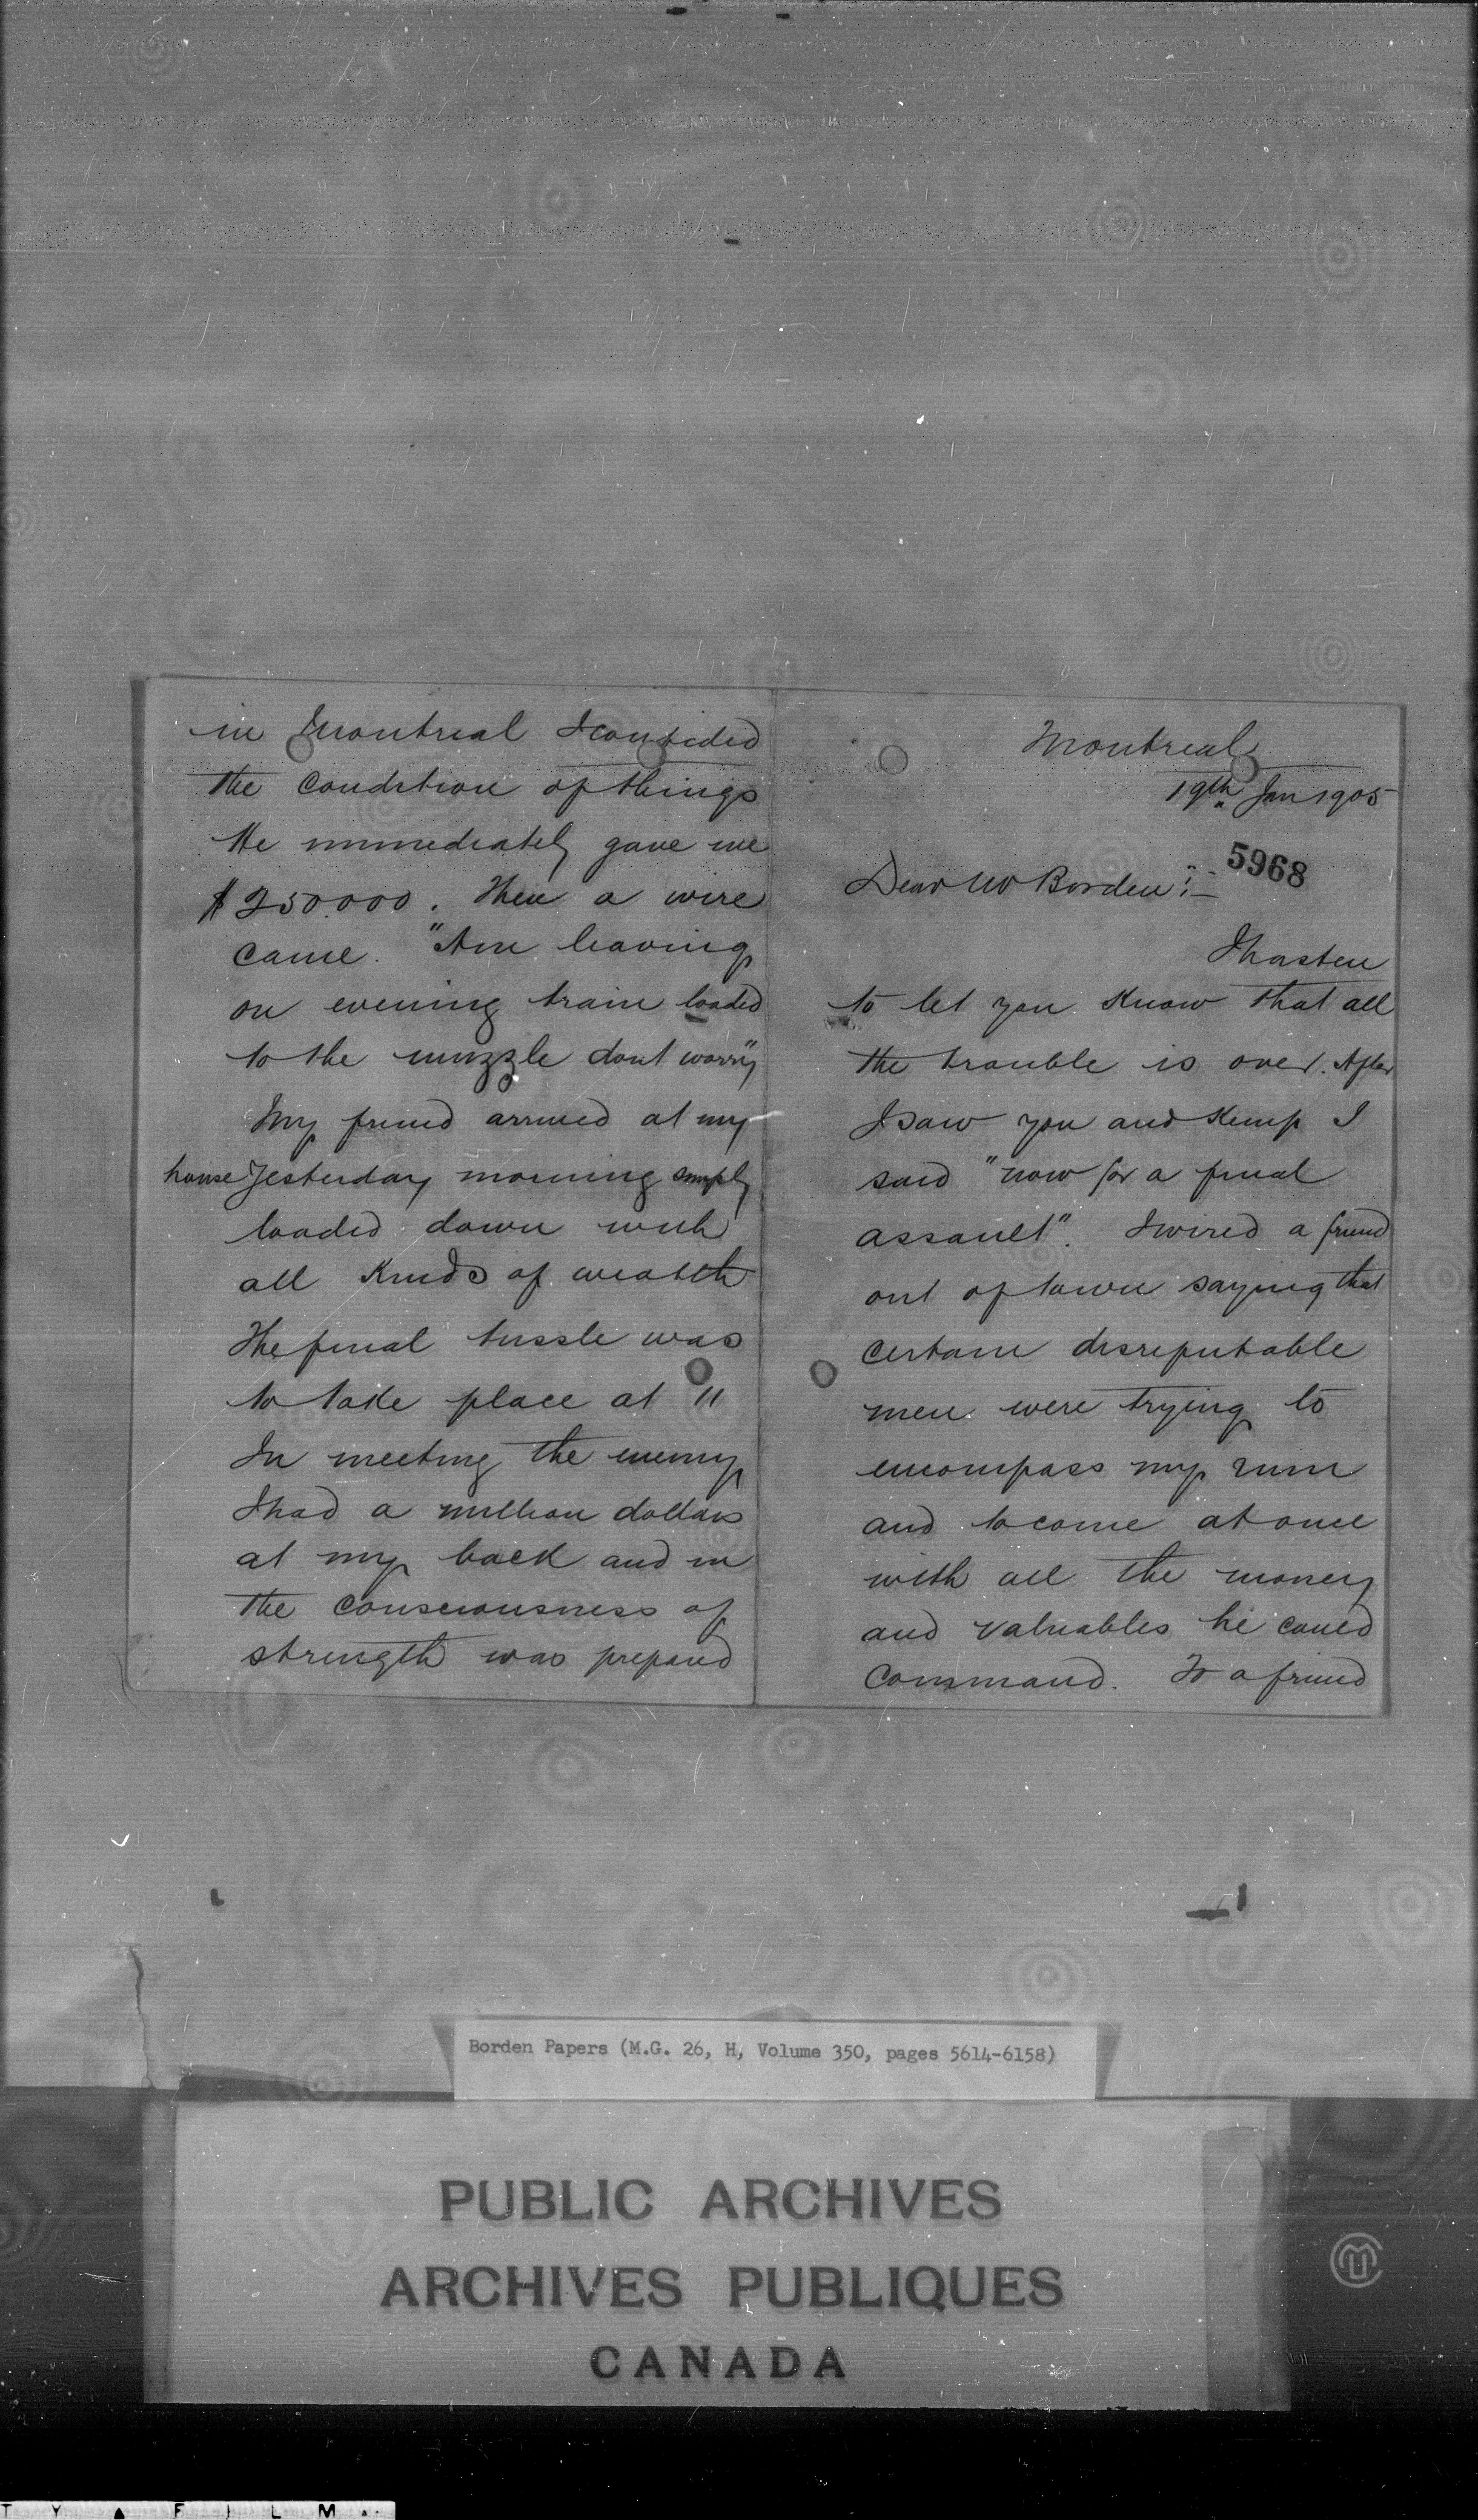 Montreal
19th Jan 1905
5968
Dear Mr Borden :-
I hasten
to let you know that all
the trouble is over. After
I saw you and Kemp I
said "now for a final
assault". I wired a friend
out of town saying that
certain disreputable
men were trying to
encompass my ruin
and to come at once
with all the money
and valuables he could
command. To a friend
in Montreal I confided
the condition of things
He immediately gave me
$250.000. Then a wire
came. "Am leaving
on evening train loaded
to the muzzle dont worry"
My friend arrived at my
house yesterday morning simply
loaded down with
all kinds of wealth
The final tussle was
to take place at 11
In meeting the enemy
I had a million dollars
at my back and in
the consciousness of
strength was prepared
Borden Papers (M.G. 26, H, Volume 350, pages 5614-6158)
PUBLIC ARCHIVES
ARCHIVES PUBLIQUES
CANADA
T Y A F I L M